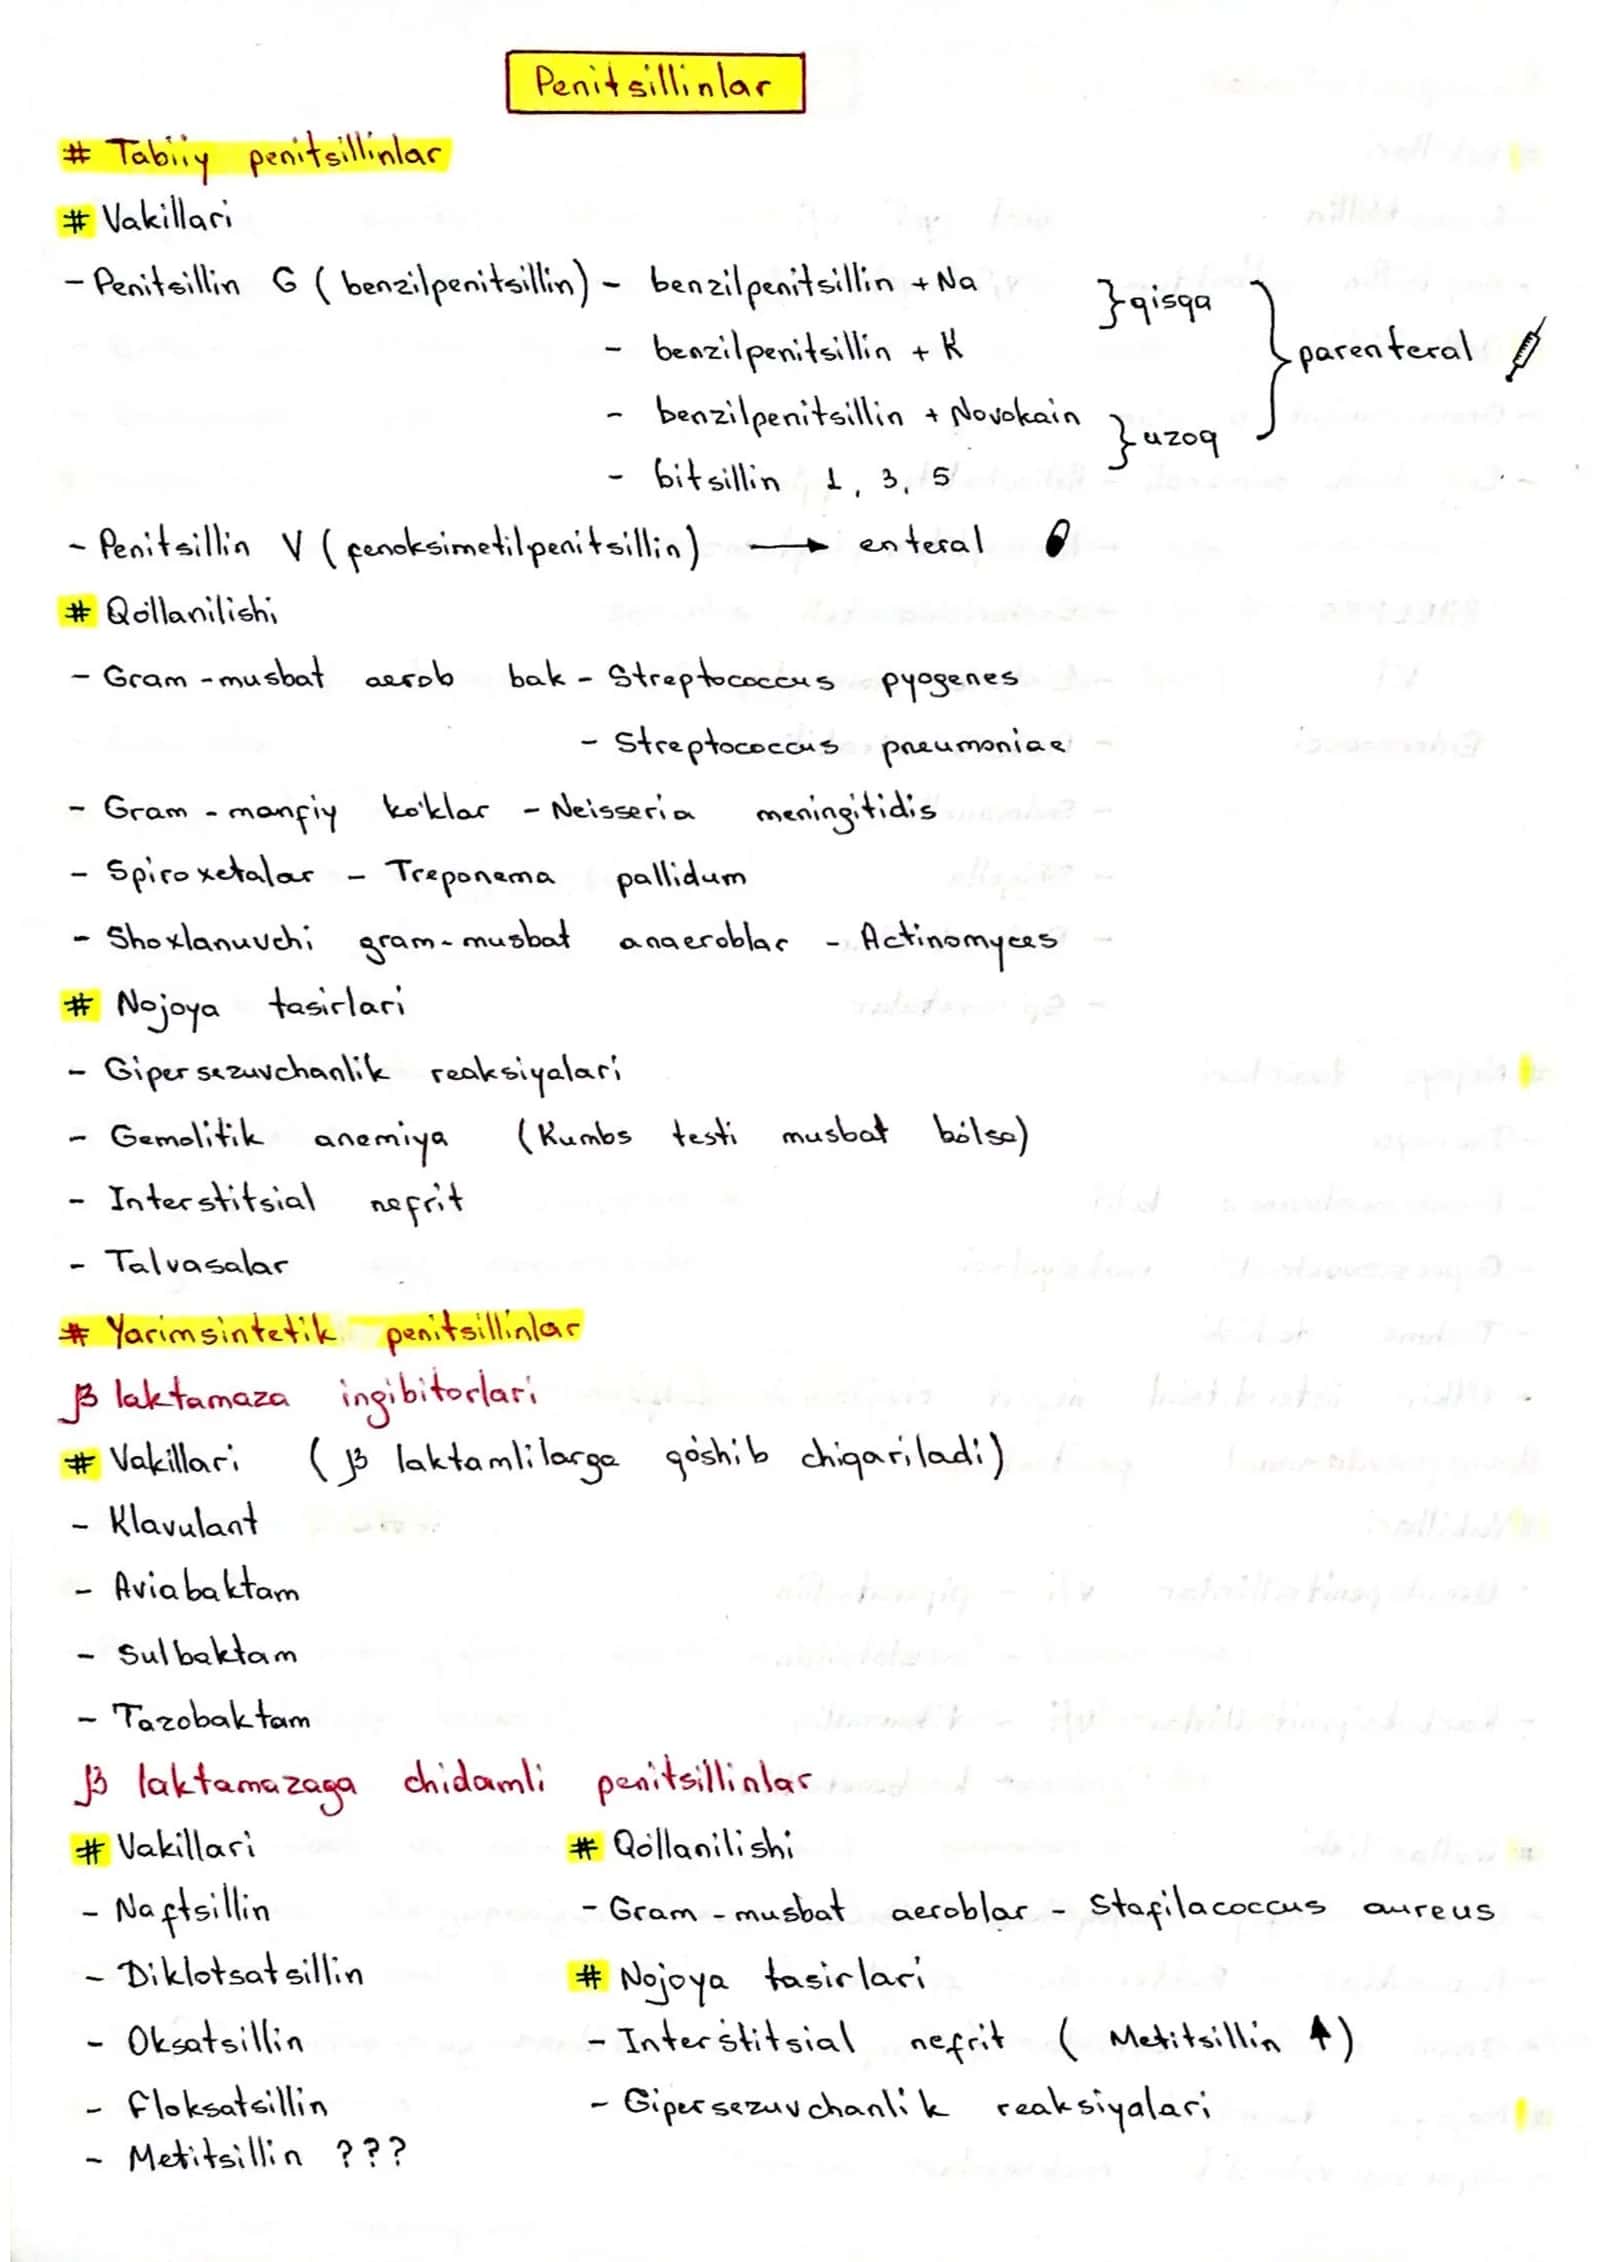 Penitsillinlar
# Tabiiy penitsillinlar
# Vakillari
- Penitsillin G (benzilpenitsillin) - benzilpenitsillin + Na } qisqa
- benzilpenitsillin + K } parenteral
- benzilpenitsillin + Novokain } uzoq
- bitsillin 1, 3, 5
- Penitsillin V (fenoksimetilpenitsillin) → enteral
# Qóllanilishi
- Gram-musbat aerob bak - Streptococcus pyogenes
- Streptococcus pneumoniae
- Gram-manfiy ko'klar - Neisseria meningitidis
- Spiroxetalar - Treponema pallidum
- Shoxlanuvchi gram-musbat anaeroblar - Actinomyces
# Nojoya tasirlari
- Gipersezuvchanlik reaksiyalari
- Gemolitik anemiya (Kumbs testi musbat bólsa)
- Interstitsial nefrit
- Talvasalar
# Yarimsintetik penitsillinlar
β laktamaza ingibitorlari
# Vakillari (β laktamlilarga qóshib chiqariladi)
- Klavulant
- Aviabaktam
- Sulbaktam
- Tazobaktam
β laktamazaga chidamli penitsillinlar
# Vakillari
- Naftsillin
- Diklotsatsillin
- Oksatsillin
- Floksatsillin
- Metitsillin ???
# Qóllanilishi
- Gram-musbat aeroblar - Stafilacoccus aureus
# Nojoya tasirlari
- Interstitsial nefrit (Metitsillin ↑)
- Gipersezuvchanlik reaksiyalari